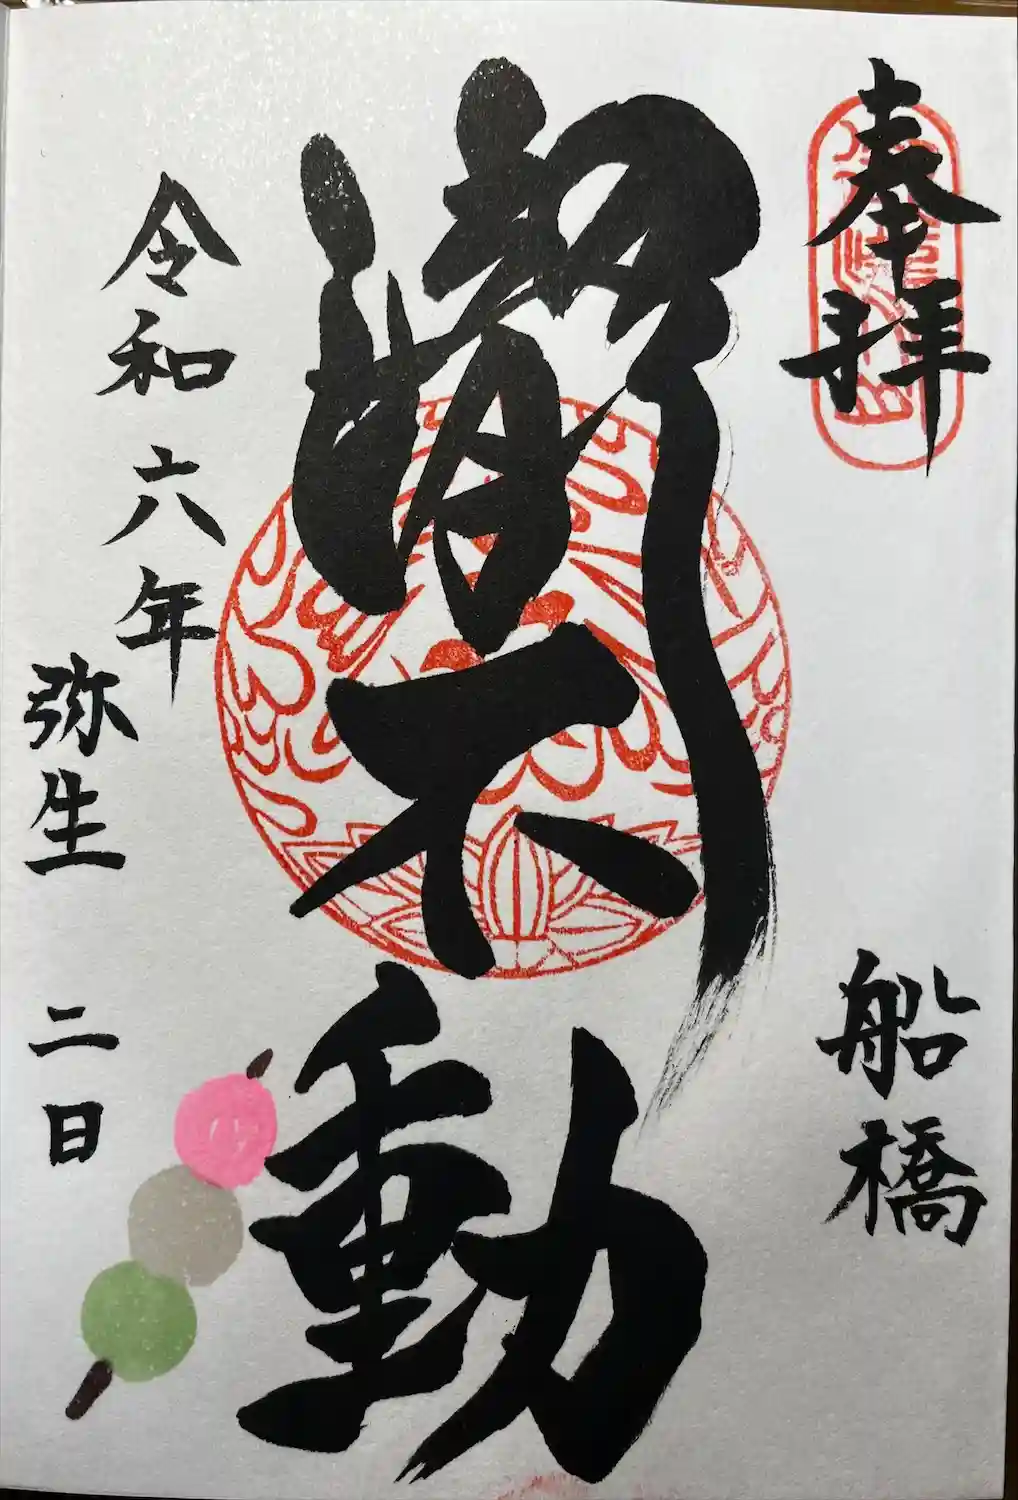 奉拝
船橋
潮不動
令和六年
弥生二日